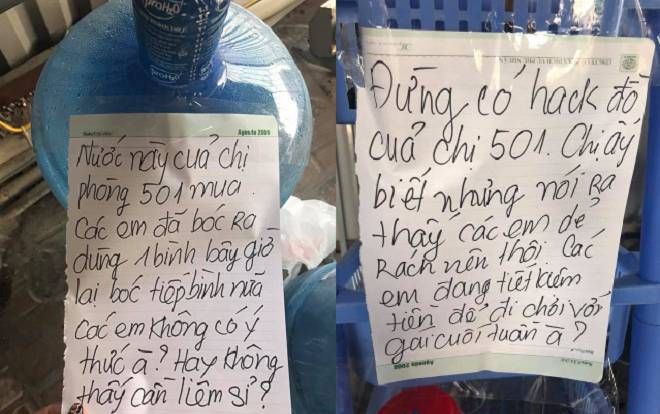 proH2O
Agenda 2005
Nước này cuả chị
phòng 501 mua.
Các em đã bóc Ra
dùng 1 bình bây giờ
lại bóc tiếp bình nữa
Các em không có ý
thức à? Hay không
thấy cắn liêm sỉ?
Đừng có hack đồ
cuả chị 501. Chị ấy
biết nhưng nói Ra
thấy các em dể
Rách nên thôi Các
em đang tiết kiệm
tiền để đi chơi với
gái cuối tuần à?